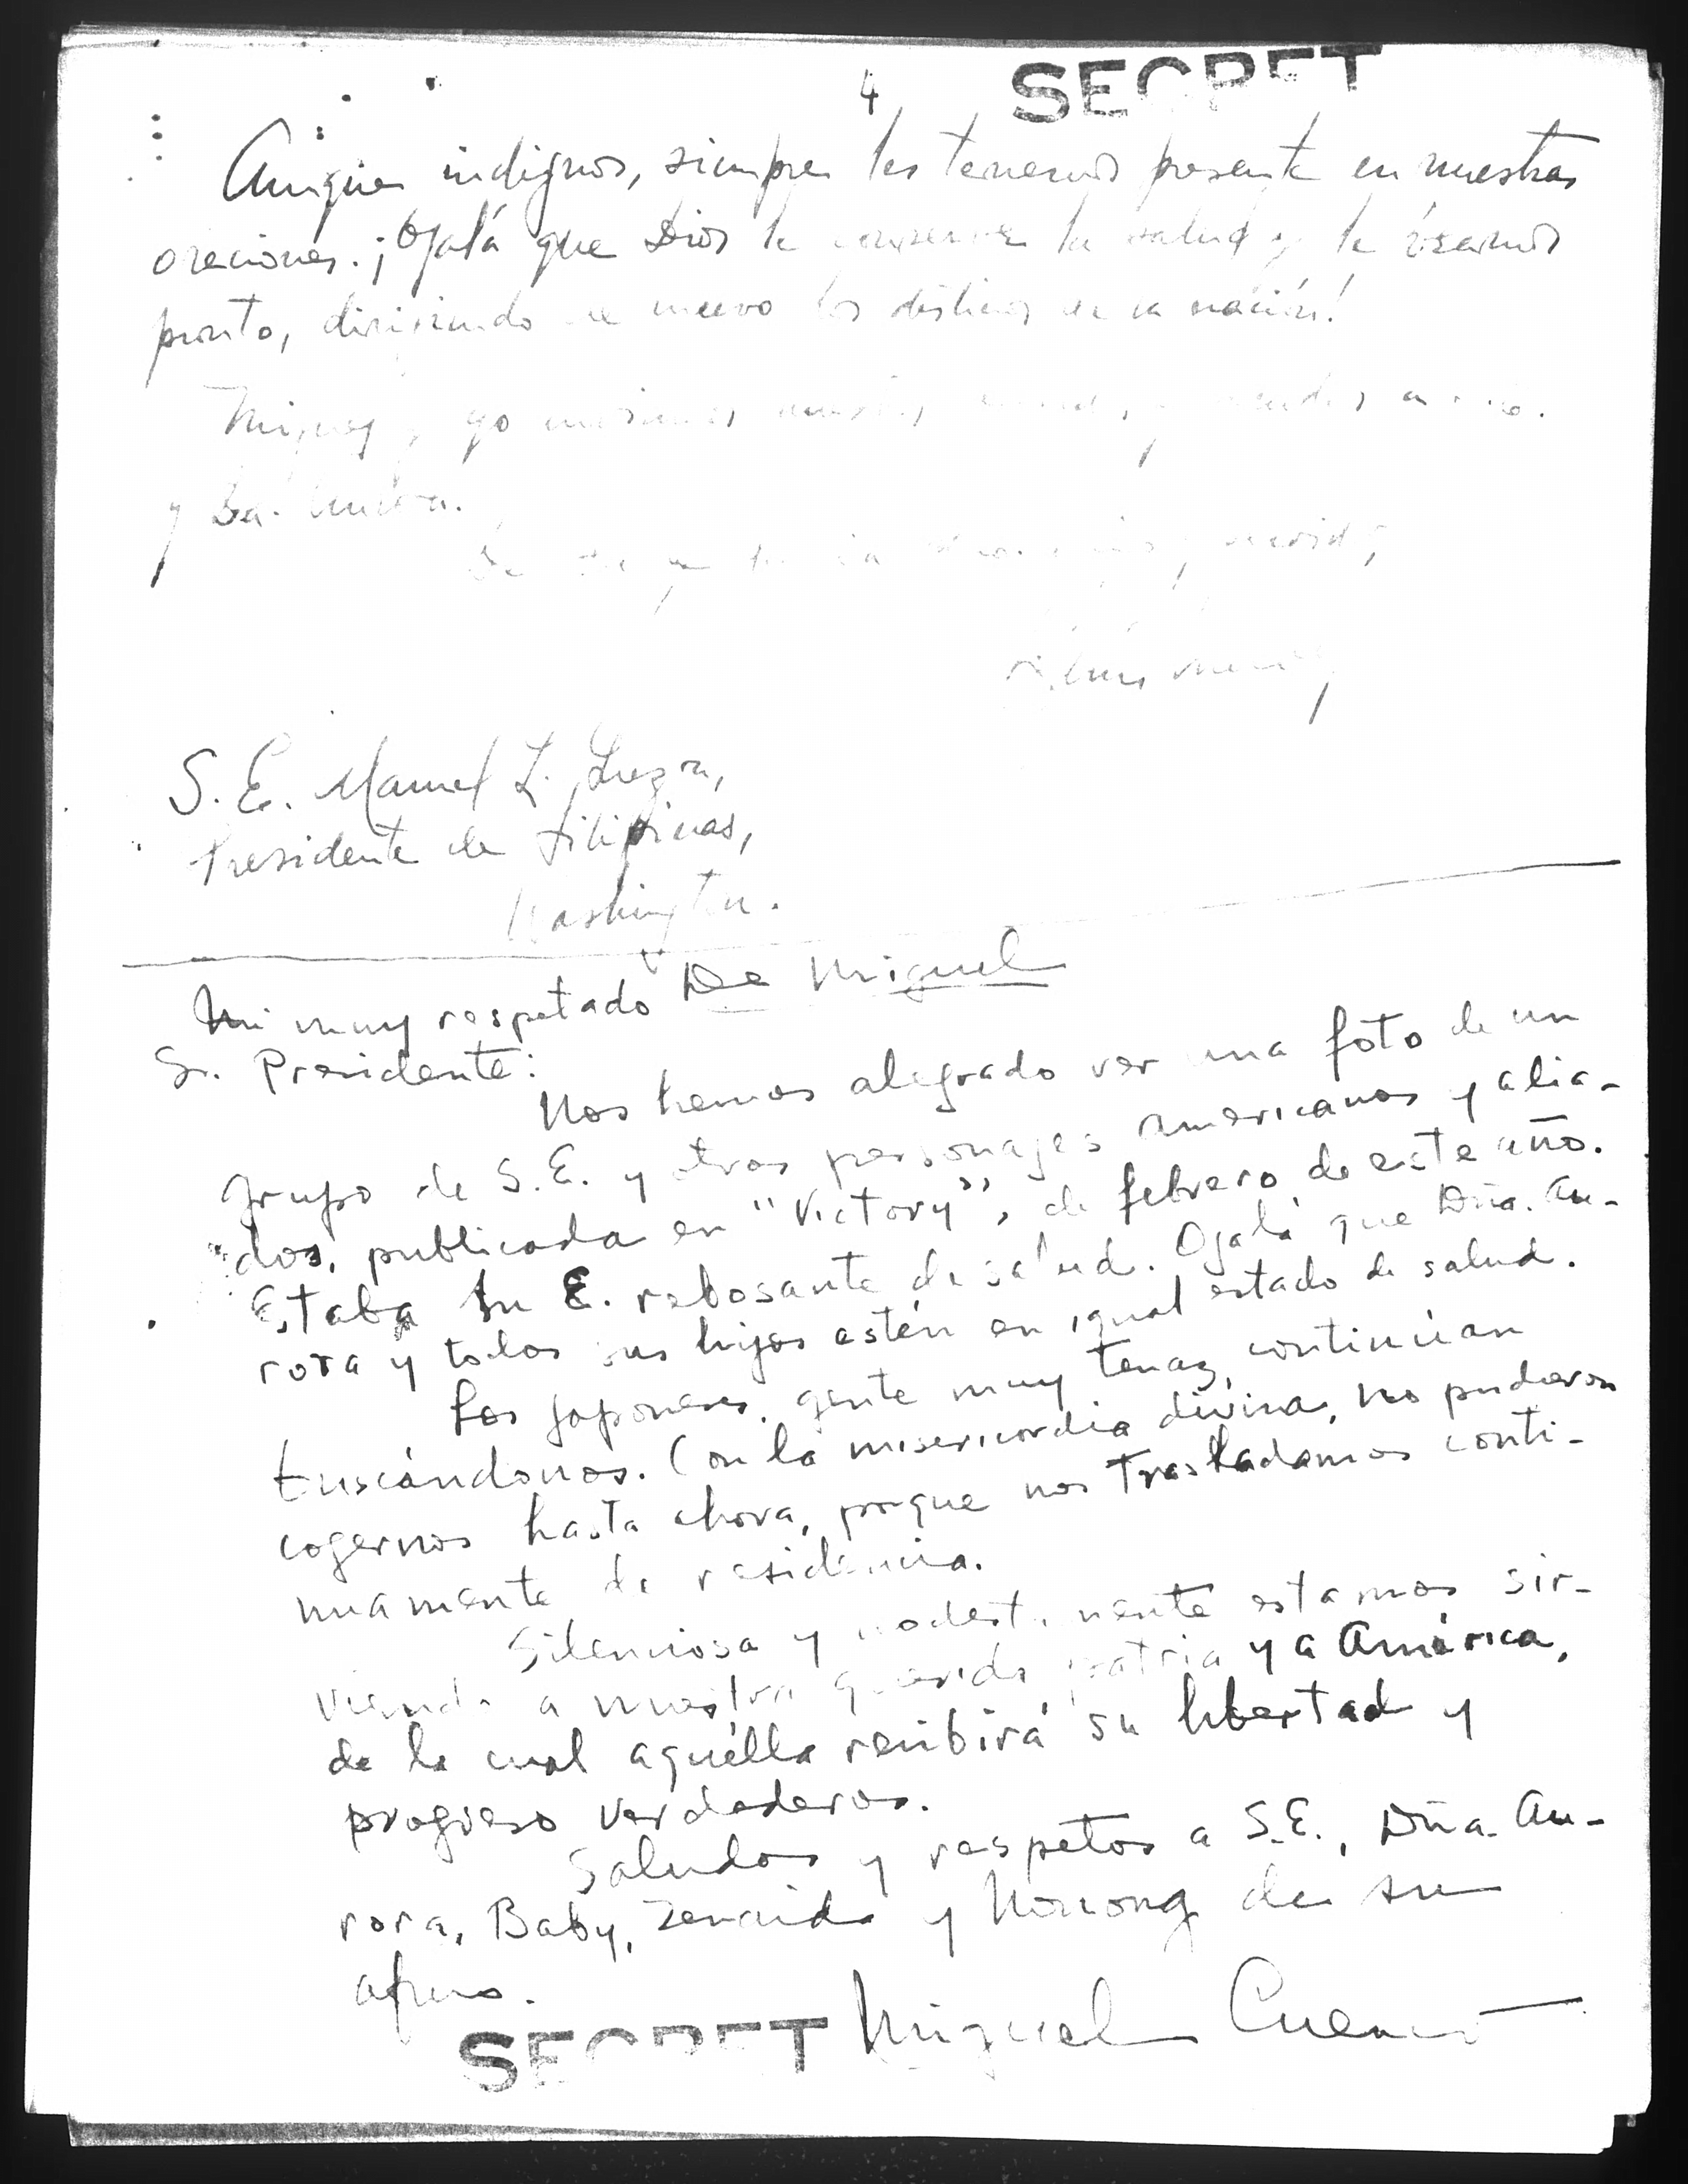 4
SECRET
Aunque indignos, siempre les tenemos presente en nuestras
oraciones. ¡Ojalá que Dios le conserve la salud y le veamos
pronto, dirigiendo de nuevo los destinos de la nación!
yo
y
S. E. Manuel L. Quezon,
Presidente de Filipinas,
Washington.
De Miguel
Mi muy respetado
Sr. Presidente:
Nos hemos alegrado ver una foto de un
grupo de S. E. y otros personajes americanos y alia-
dos, publicada en "Victory", de febrero de este año.
Estaba Su E. rebosante de salud. Ojalá que Dña. Au-
rora y todos sus hijos estén en igual estado de salud.
Los japoneses, gente muy tenaz, continúan
buscándonos. Con la misericordia divina, no pudieron
cogernos hasta ahora, porque nos trasladamos conti-
nuamente de residencia.
Silenciosa y modestamente estamos sir-
viendo a nuestra querida patria y a América,
de la cual aquélla recibirá su libertad y
progreso verdaderos.
Saludos y respetos a S.E., Dña. Au-
rora, Baby, Zenaida y Nonong de su
afmo.
Miguel Cuenco
SECRET